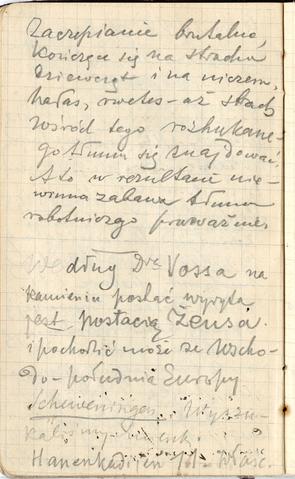 Zaczepianie brutalne,
kończące się na strachu
dziewcząt i na niczem.
hałas, rwetes - aż strach
wśród tego rozhukane-
go tłumu się znajdować.
A to w rezultacie nie-
winna zabawa tłumu
robotniczego przeważnie.
Według Dra Vossa na
kamieniu postać wyryta
jest postacią Zeusa.
i pochodzić może ze Wscho-
do-południa Europy
Scheveningen. Wyszu-